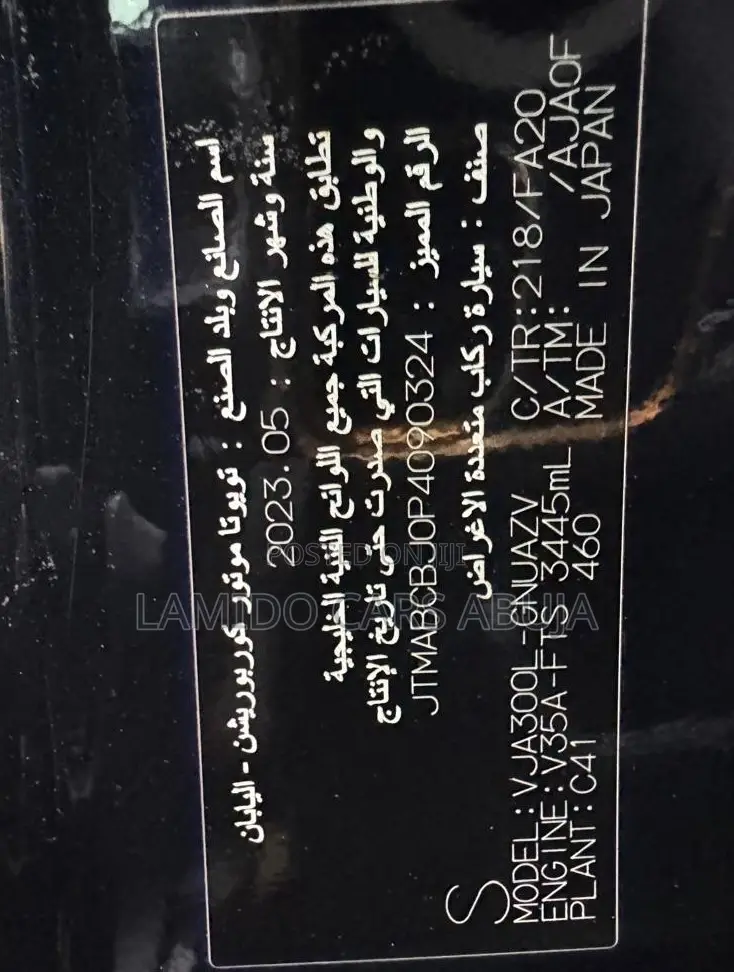 اسم الصانع وبلد الصنع : تويوتا موتور كوربوريشن - اليابان
سنة وشهر الانتاج : 2023.05
تطابق هذه المركبة جميع اللوائح الفنية الخليجية
والوطنية للسيارات التي صدرت حتى تاريخ الإنتاج
الرقم المميز : JTMABCBJ0P4090324
صنف : سيارة ركاب متعددة الاغراض
S
MODEL:VJA300L-GNUAZV C/TR:218/FA20
ENGINE:V35A-FTS 3445mL A/TM: /AJA0F
PLANT:C41 460 MADE IN JAPAN
POSTED ON Jiji
LAMIDO CARS ABUJA